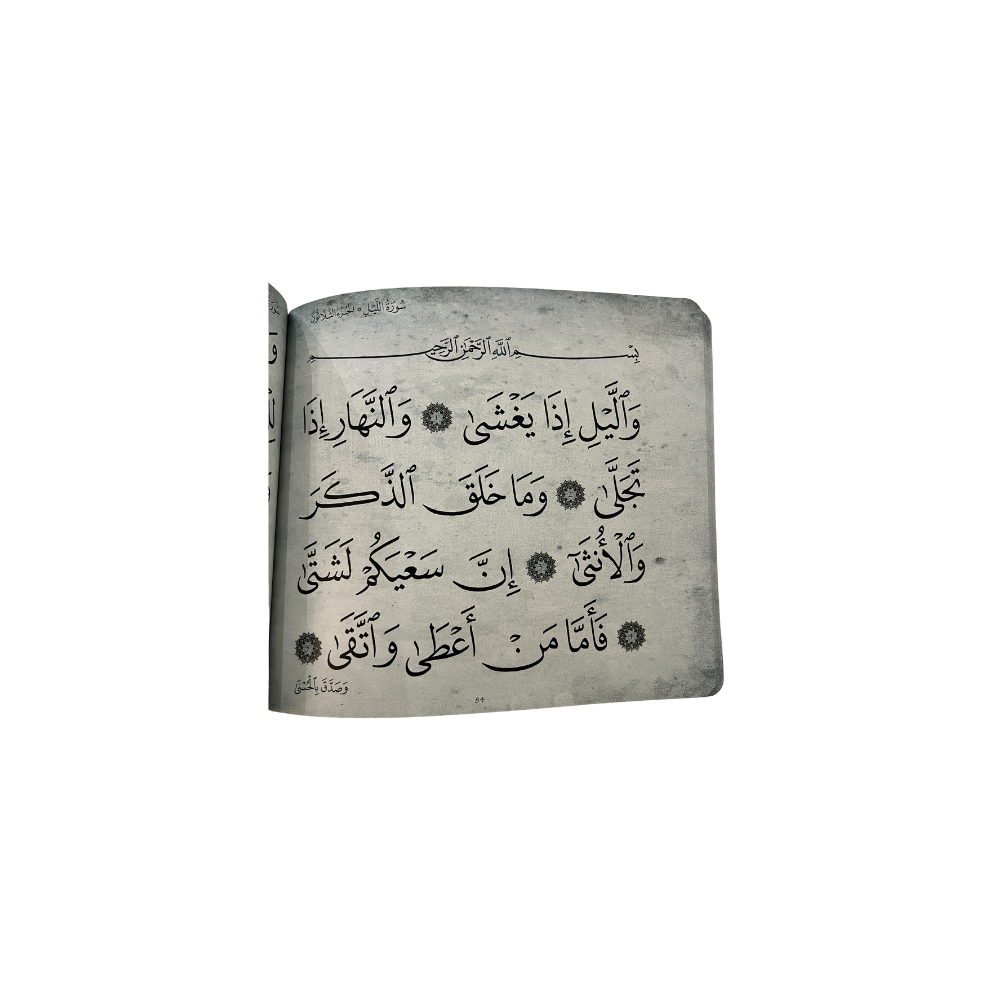 سُورَةُ اللَّيْلِ ۞ الجُزْءُ الثَّلَاثُونَ
بِسْمِ ٱللَّهِ ٱلرَّحْمَٰنِ ٱلرَّحِيمِ
وَٱلَّيْلِ إِذَا يَغْشَىٰ ١ وَٱلنَّهَارِ إِذَا
تَجَلَّىٰ ٢ وَمَا خَلَقَ ٱلذَّكَرَ
وَٱلْأُنثَىٰٓ ٣ إِنَّ سَعْيَكُمْ لَشَتَّىٰ
٤ فَأَمَّا مَنْ أَعْطَىٰ وَٱتَّقَىٰ ٥
وَصَدَّقَ بِالْحُسْنَىٰ